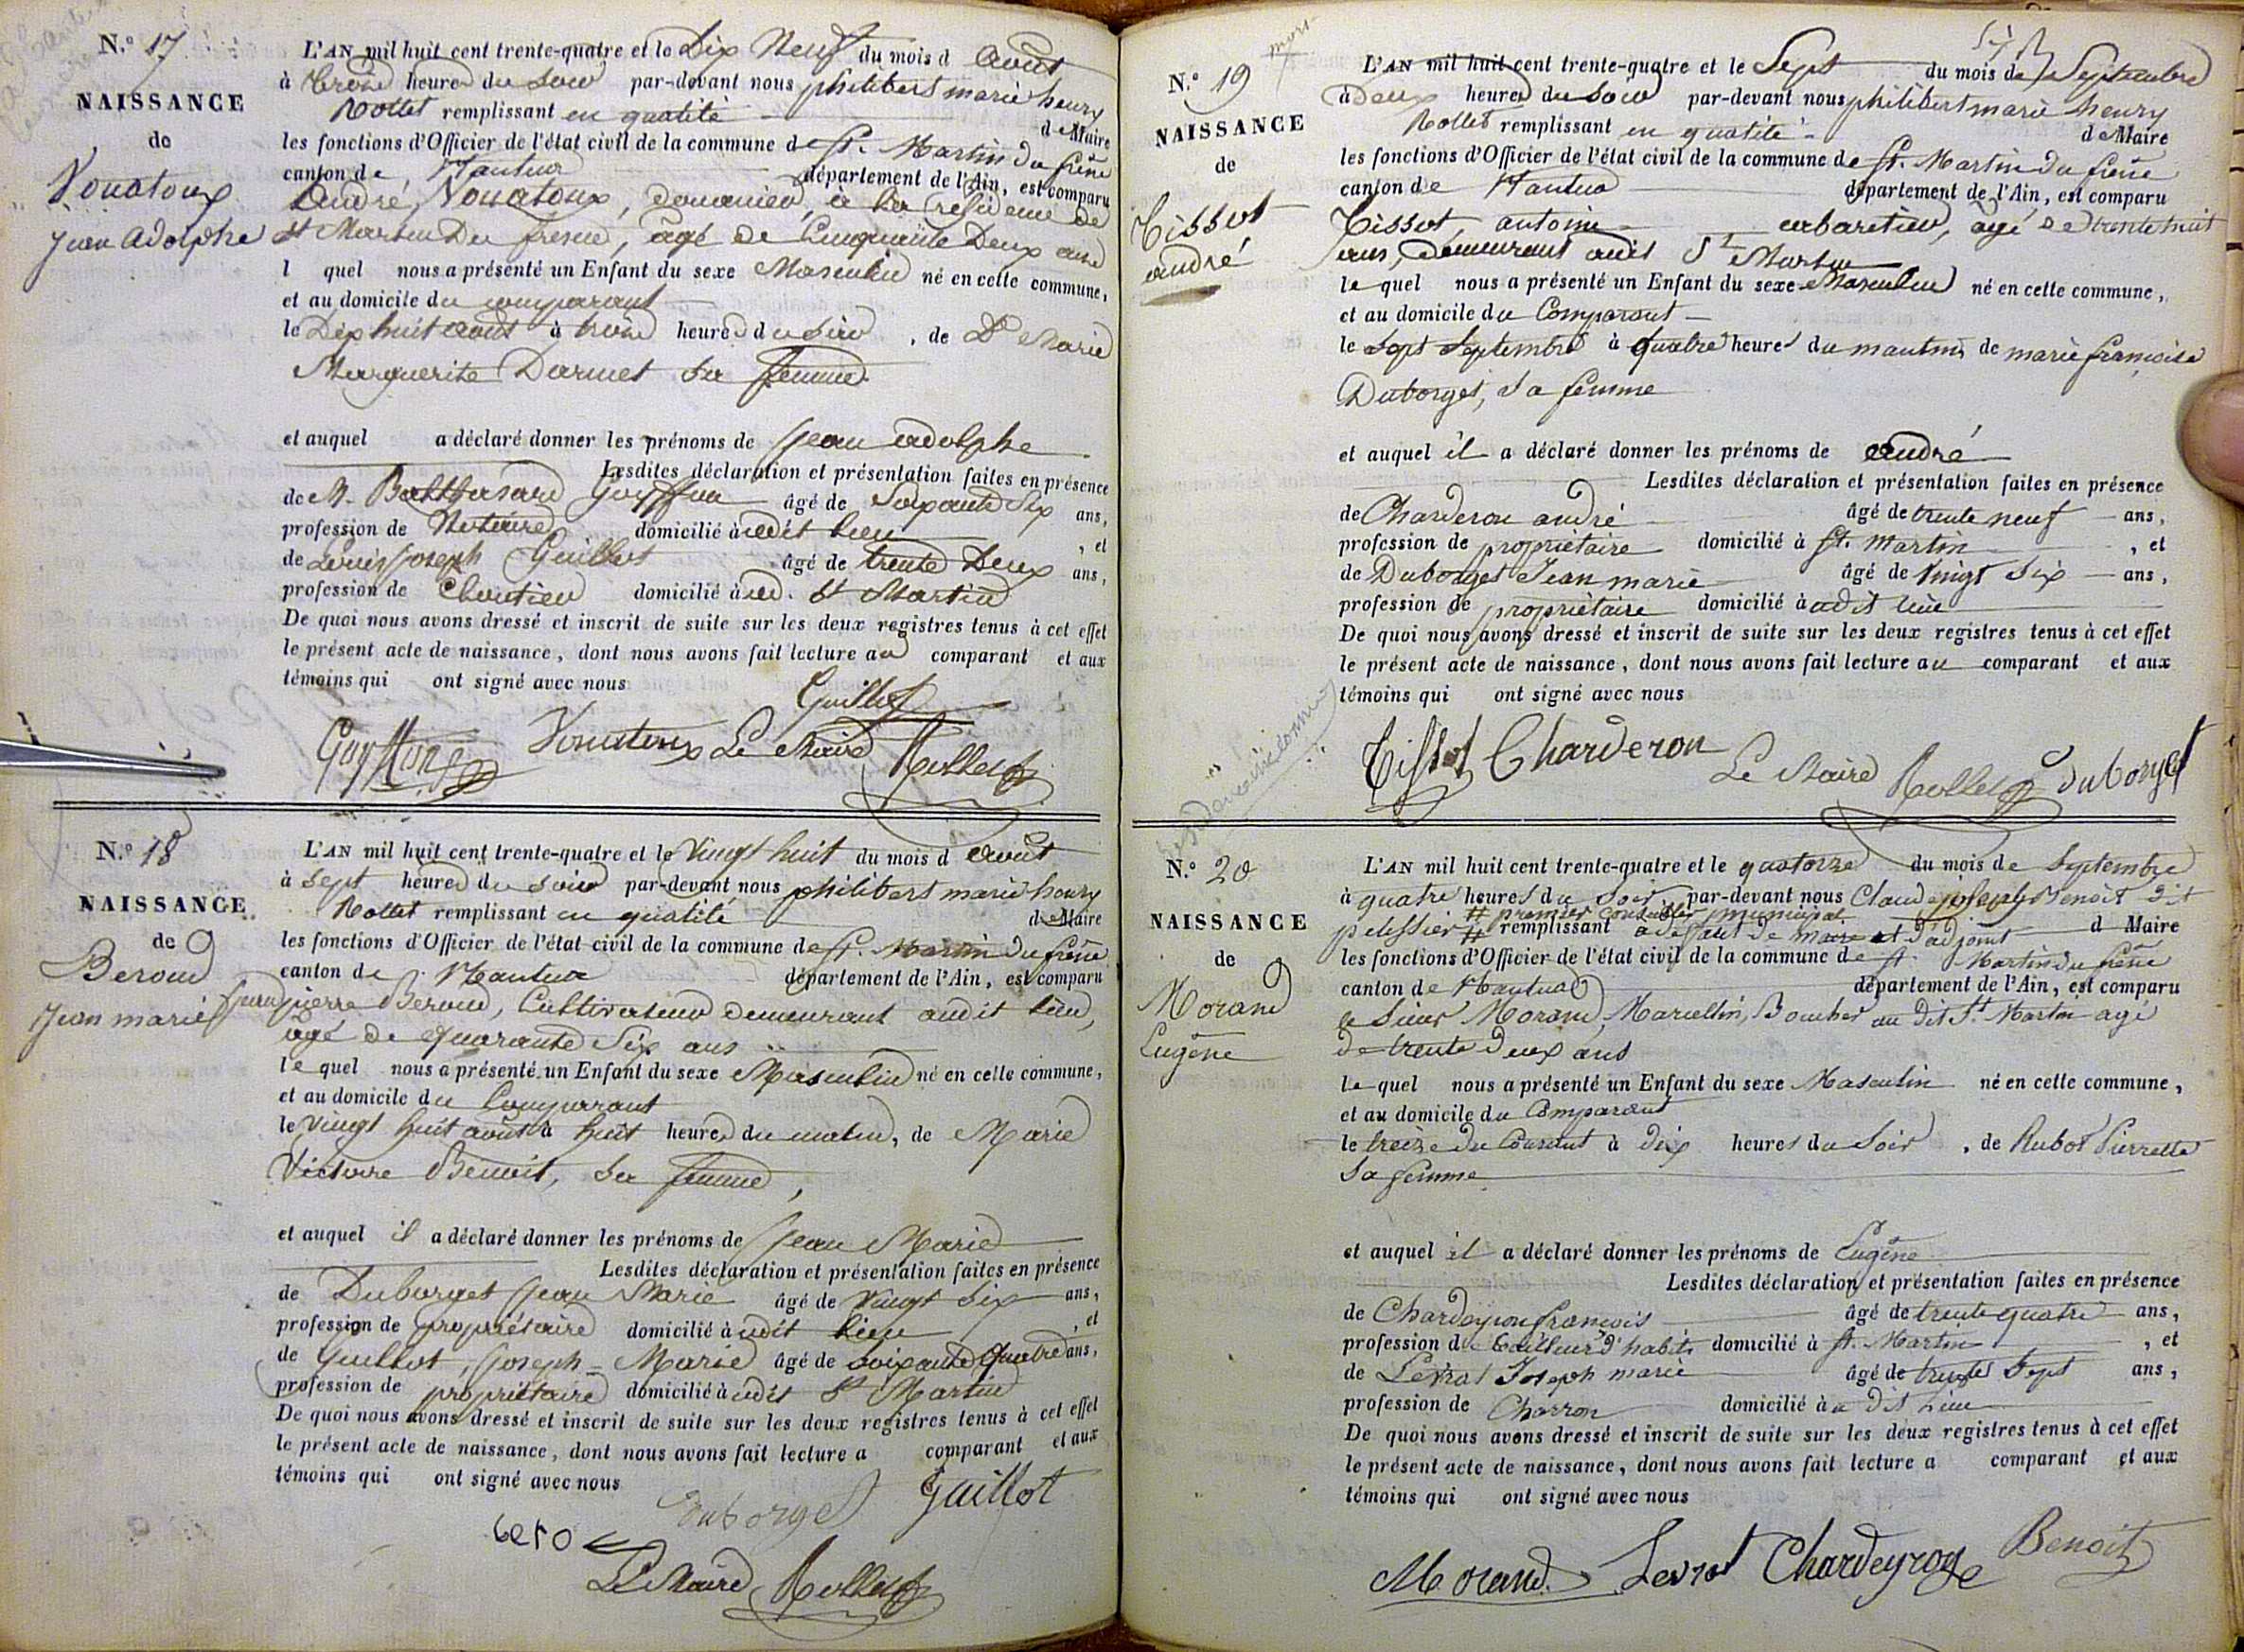 N.° 17
NAISSANCE
de
Vouatoux
Jean Adolphe
L'AN mil huit cent trente-quatre et le Dix Neuf du mois d Août
à trois heures du soir par-devant nous philibert marie henry
Rollet remplissant en qualité de Maire
les fonctions d'Officier de l'état civil de la commune de St. Martin du frêne
canton de Nantua département de l'Ain, est comparu
André Vouatoux, douanier, à la résidence de
St Martin Du fresne, âgé de Cinquante Deux ans
l quel nous a présenté un Enfant du sexe Masculin né en cette commune,
et au domicile du comparant
le Dix huit août à trois heures du soir, de De Marie
Marguerite Darmet sa femme
et auquel a déclaré donner les prénoms de Jean adolphe
Lesdites déclaration et présentation faites en présence
de M. Balthasard Guyffon âgé de Soixante Six ans,
profession de Notaire domicilié à udit lieu, et
de Louis Joseph Guillot âgé de trente Deux ans,
profession de domicilié à ud. St Martin
De quoi nous avons dressé et inscrit de suite sur les deux registres tenus à cet effet
le présent acte de naissance, dont nous avons fait lecture au comparant et aux
témoins qui ont signé avec nous
Guillot
Vouatoux Le Maire Rollet
N.° 18
NAISSANCE
de
Beroud
Jean marie
L'AN mil huit cent trente-quatre et le Vingt huit du mois d août
à sept heures du soir par-devant nous philibert marie henry
Rollet remplissant en qualité de Maire
les fonctions d'Officier de l'état civil de la commune de St. Martin du frêne
canton de Nantua département de l'Ain, est comparu
pierre Beroud, Cultivateur demeurant audit lieu,
âgé de quarante Six ans
le quel nous a présenté un Enfant du sexe Masculin né en cette commune,
et au domicile du Comparant
le vingt huit août à huit heures du matin, de Marie
Victoire Benoit, sa femme,
et auquel il a déclaré donner les prénoms de Jean Marie
Lesdites déclaration et présentation faites en présence
de Duborget Jean Marie âgé de Vingt Six ans,
profession de propriétaire domicilié à udit lieu, et
de Guillot, Joseph-Marie âgé de Soixante Quatre ans,
profession de propriétaire domicilié à udit St Martin
De quoi nous avons dressé et inscrit de suite sur les deux registres tenus à cet effet
le présent acte de naissance, dont nous avons fait lecture a comparant et aux
témoins qui ont signé avec nous
Duborget Guillot
bero
Le Maire Rollet
mort
N.° 19
NAISSANCE
de
Tissot
andré
L'AN mil huit cent trente-quatre et le Sept du mois de Septembre
à deux heures du soir par-devant nous philibert marie henry
Rollet remplissant en qualité de Maire
les fonctions d'Officier de l'état civil de la commune de St. Martin du frêne
canton de Nantua département de l'Ain, est comparu
Tissot, antoine cabaretier, âgé de trente huit
ans, demeurant audit St Martin
le quel nous a présenté un Enfant du sexe Masculin né en cette commune,
et au domicile du Comparant
le sept Septembre à quatre heures du matin, de marie françoise
Duborget, sa femme
et auquel il a déclaré donner les prénoms de andré
Lesdites déclaration et présentation faites en présence
de Charderon andré âgé de trente neuf ans,
profession de propriétaire domicilié à St. Martin, et
de Duborget Jean marie âgé de Vingt Six ans,
profession de propriétaire domicilié à udit lieu
De quoi nous avons dressé et inscrit de suite sur les deux registres tenus à cet effet
le présent acte de naissance, dont nous avons fait lecture au comparant et aux
témoins qui ont signé avec nous
Tissot Charderon Le Maire Rollet duborget
N.° 20
NAISSANCE
de
Morand
Eugène
L'AN mil huit cent trente-quatre et le quatorze du mois de Septembre
à quatre heures du soir par-devant nous Claude joseph Benoit dit
# premier conseiller municipal
pelissier # remplissant à défaut de maire et d'adjoint d Maire
les fonctions d'Officier de l'état civil de la commune de St. Martin du frêne
canton de Nantua département de l'Ain, est comparu
le Sieur Morand, Marcellin, Boucher au dit St. Martin agé
de trente deux ans
le quel nous a présenté un Enfant du sexe Masculin né en cette commune,
et au domicile du Comparant
le treize du Courant à dix heures du Soir, de Rubot Pierrette
sa femme
et auquel il a déclaré donner les prénoms de Eugène
Lesdites déclaration et présentation faites en présence
de Chardeyron françois âgé de trente quatre ans,
profession de tailleur d'habits domicilié à St. Martin, et
de Levrat Joseph marie âgé de trente Sept ans,
profession de Charron domicilié à u dit lieu
De quoi nous avons dressé et inscrit de suite sur les deux registres tenus à cet effet
le présent acte de naissance, dont nous avons fait lecture a comparant et aux
témoins qui ont signé avec nous
Morand Levrat Chardeyron Benoit